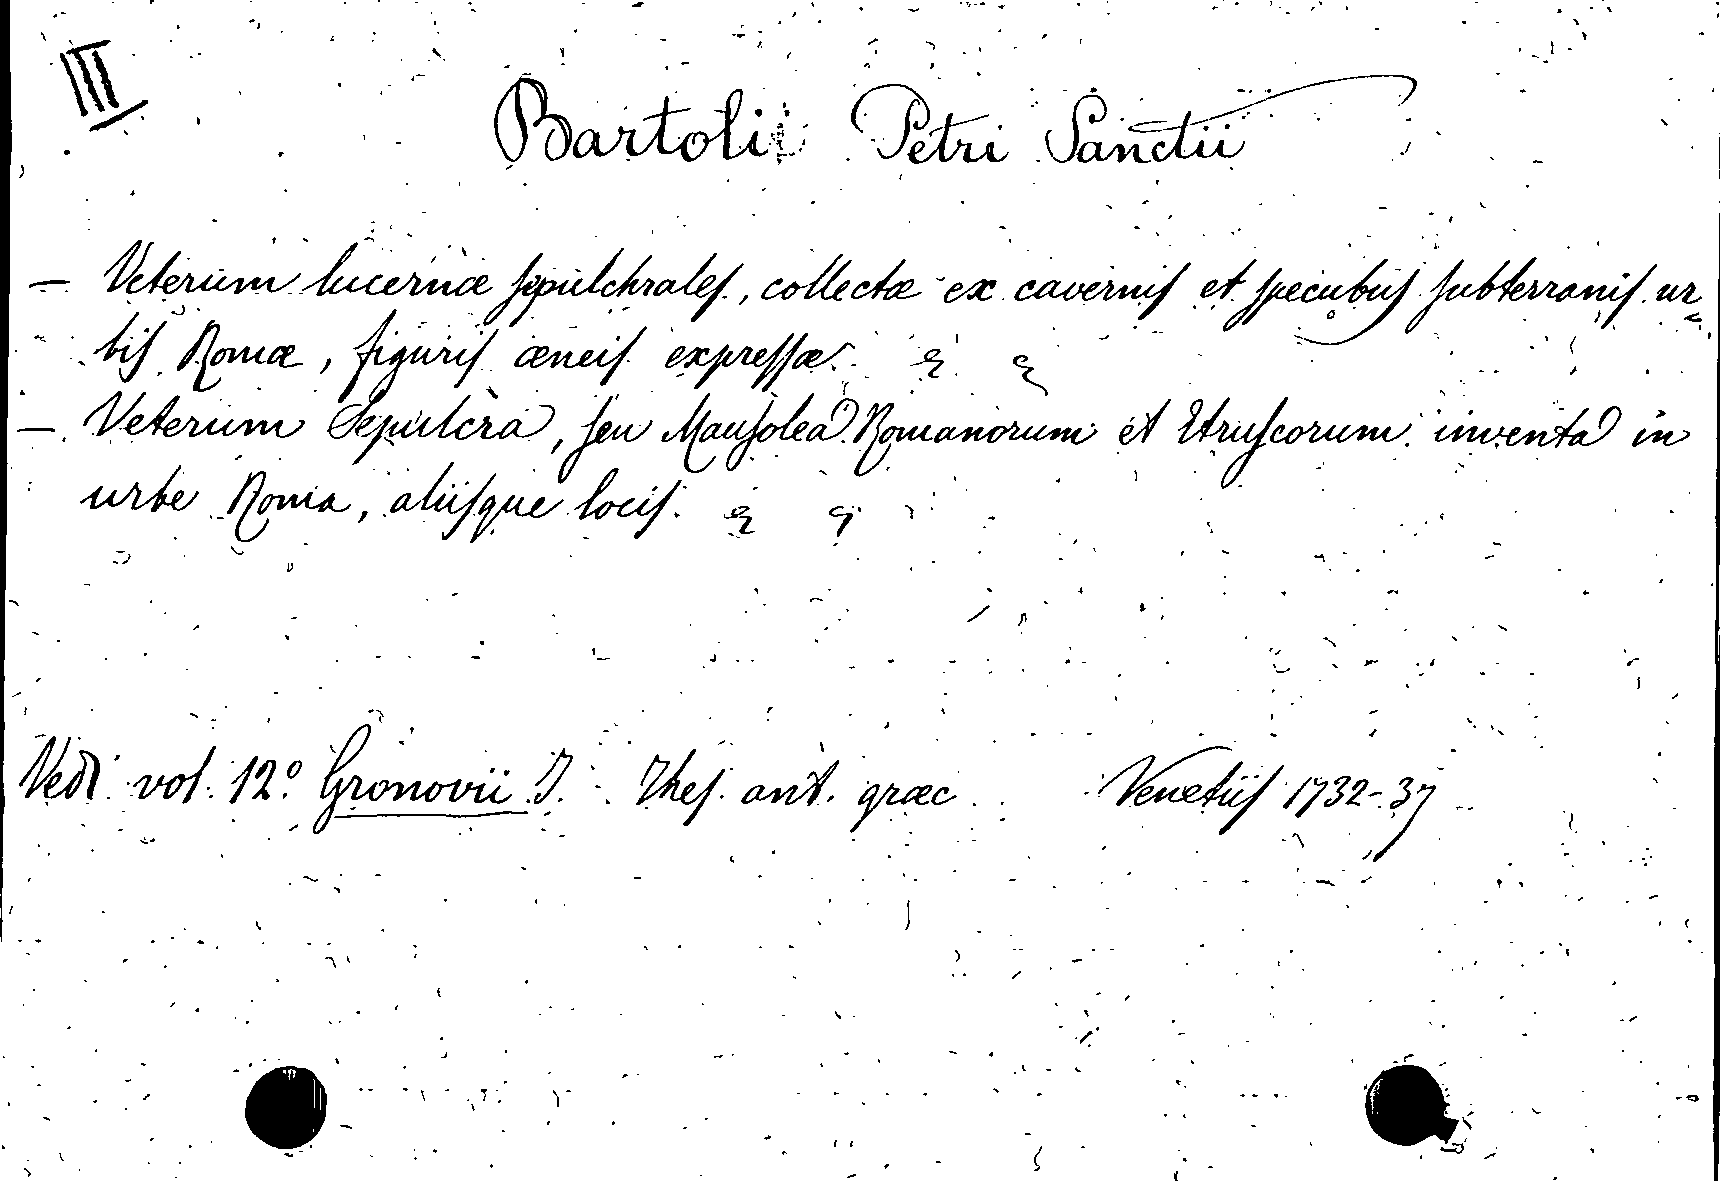 III
Bartolii Petri Sanctii
— Veterum lucernæ sepulchrales, collectæ ex cavernis et specubus subterranis ur
bis Romæ, figuris æneis expressæ. & &
— Veterum Sepulcra, seu Mausolea Romanorum et Etruscorum inventa in
urbe Roma, aliisque locis. & &
Vedi vol. 12.º Gronovii J. Thes. ant. græc Venetiis 1732-37